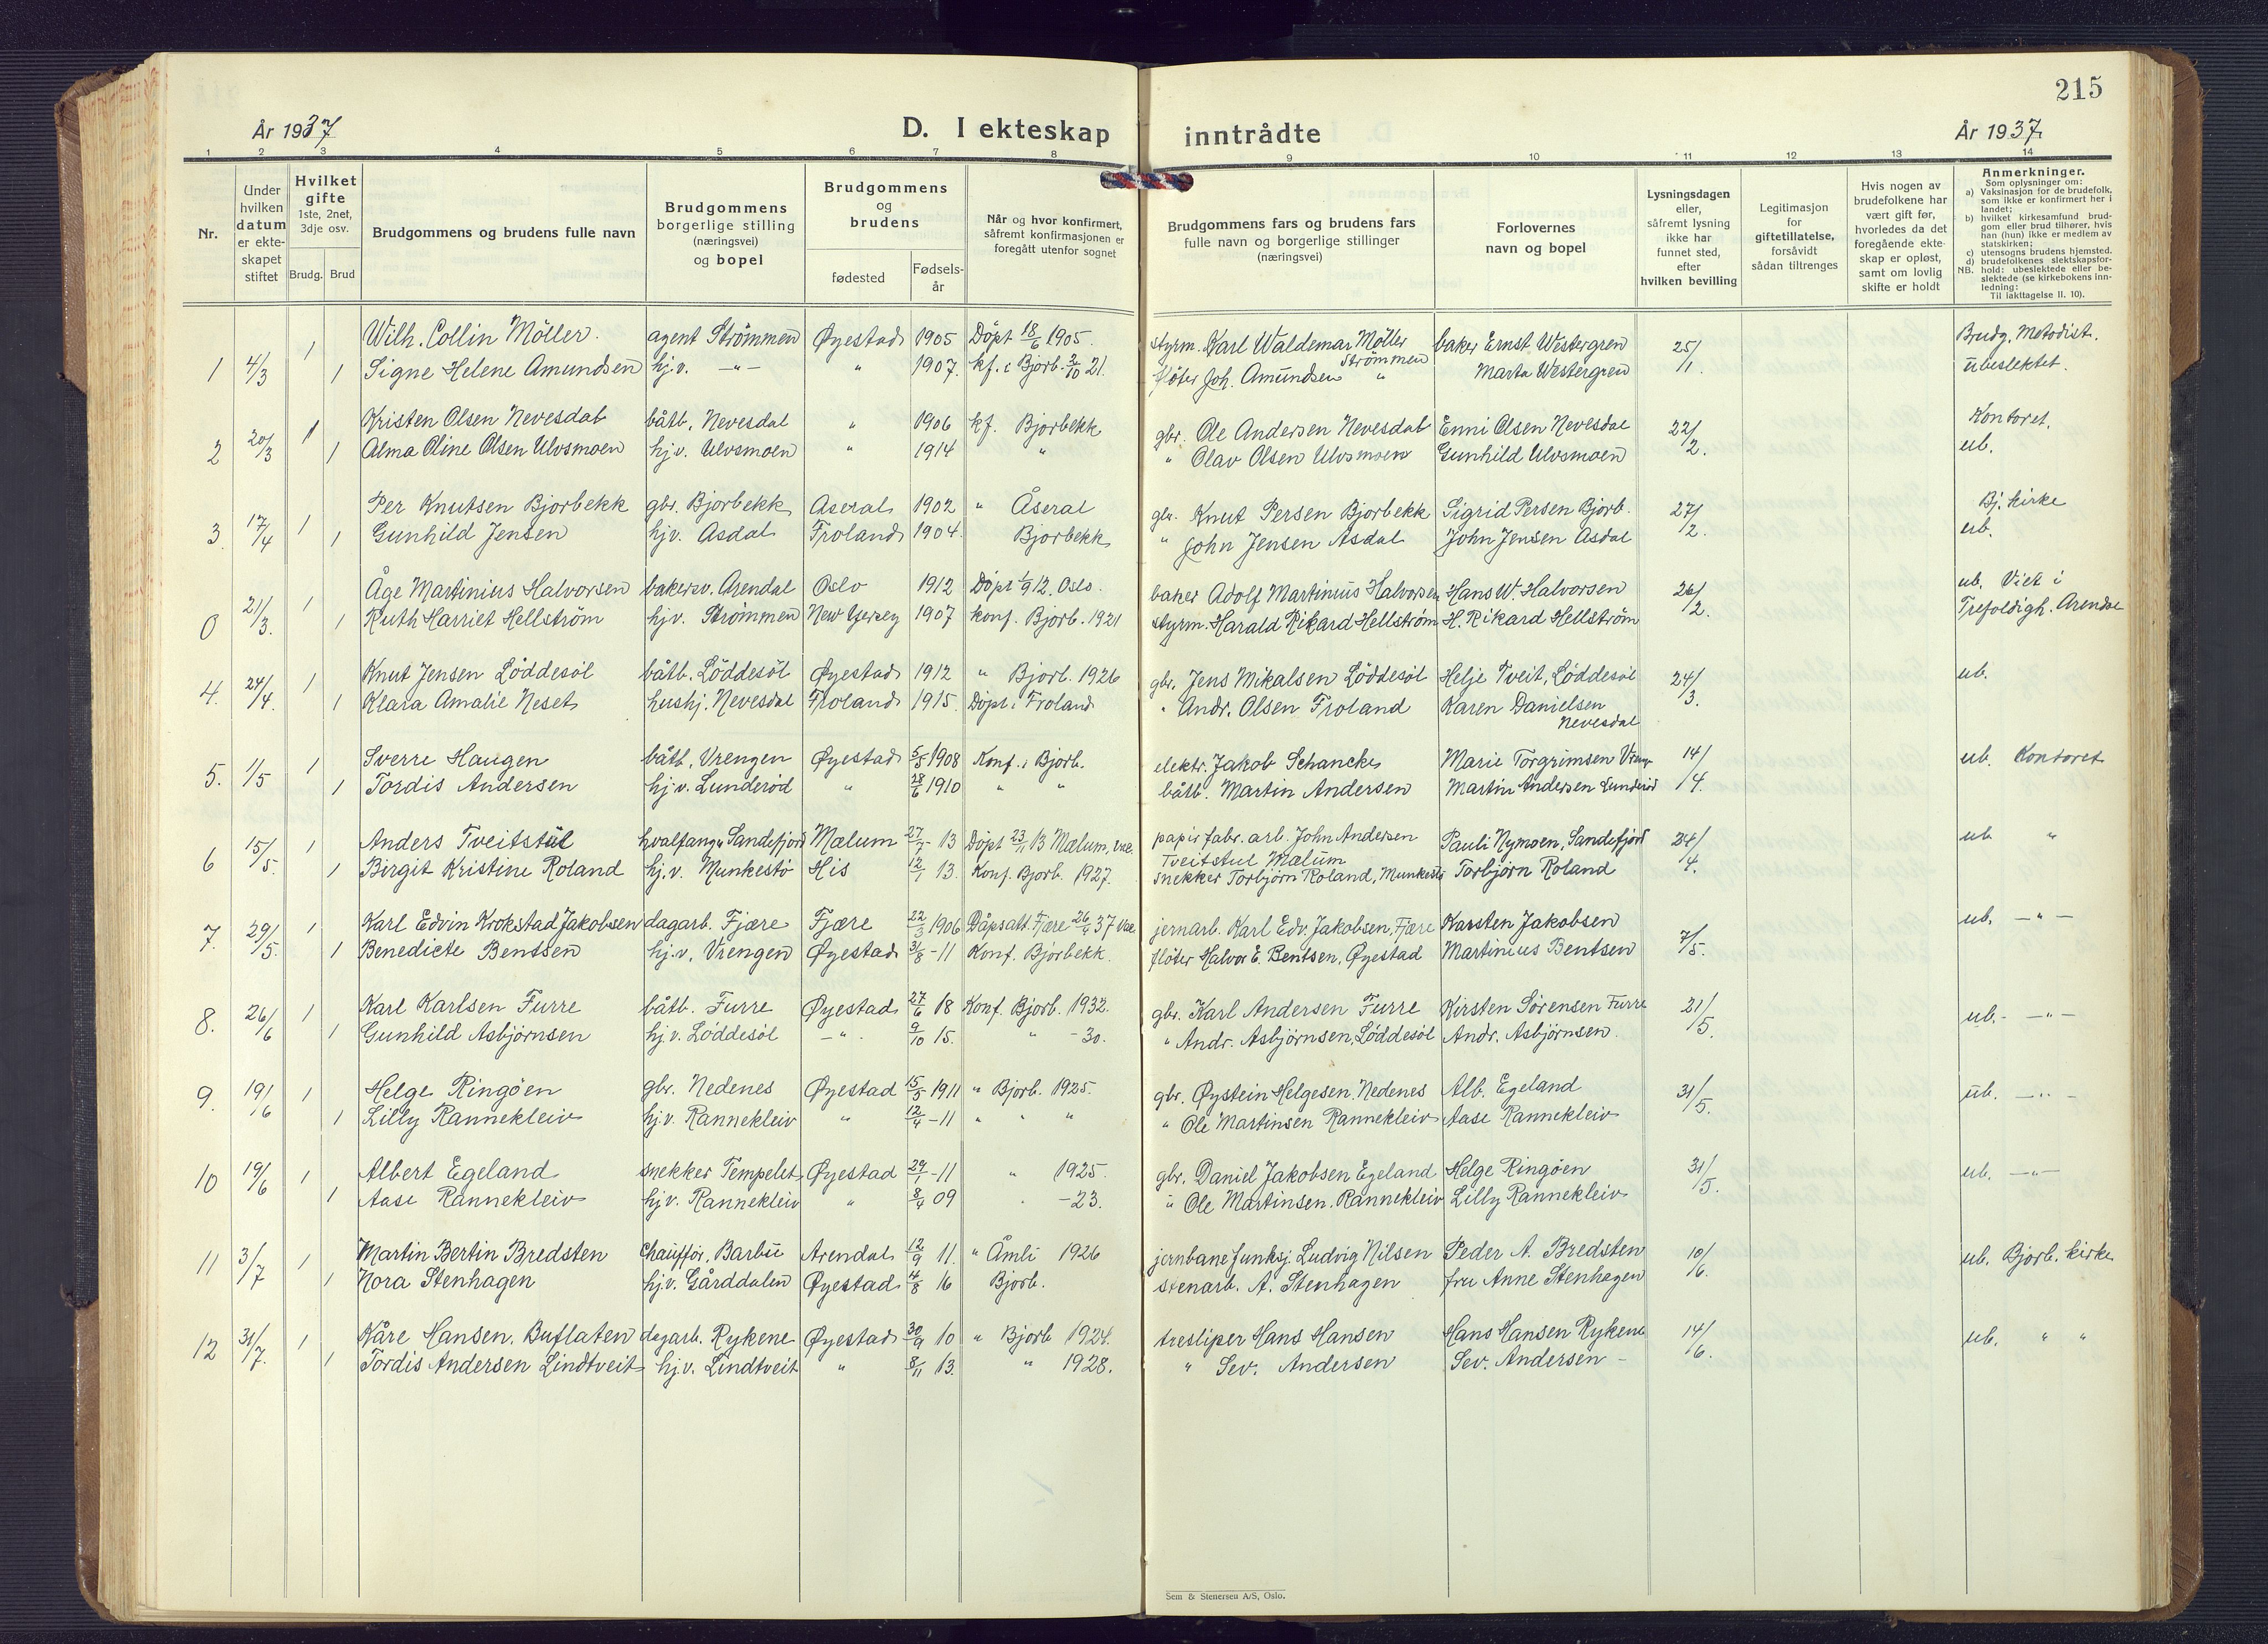 215
År 1937
D. I ekteskap inntrådte
År 1937.
1 2 3 4 5 6 7 8 9 10 11 12 13 14
Nr.
Under hvilken datum er ekte-skapet stiftet
Hvilket gifte 1ste, 2net, 3dje osv.
Brudg. Brud
Brudgommens og brudens fulle navn
Brudgommens borgerlige stilling (næringsvei) og bopel
Brudgommens og brudens
fødested
Fødsels-år
Når og hvor konfirmert, såfremt konfirmasjonen er foregått utenfor sognet
Brudgommens fars og brudens fars fulle navn og borgerlige stillinger (næringsvei)
Forlovernes navn og bopel
Lysningsdagen eller, såfremt lysning ikke har funnet sted, efter hvilken bevilling
Legitimasjon for giftetillatelse, forsåvidt sådan tiltrenges
Hvis nogen av brudefolkene har vært gift før, hvorledes da det foregående ekte-skap er opløst, samt om lovlig skifte er holdt
Anmerkninger.
Som oplysninger om:
a) Vaksinasjon for de brudefolk, som ikke er konfirmert her i landet;
b) hvilket kirkesamfund brud-gom eller brud tilhører, hvis han (hun) ikke er medlem av statskirken;
c) utensogns brudens hjemsted.
d) brudefolkenes slektskapsfor-hold: ubeslektede eller be-slektede (se kirkebokens inn-ledning:
NB. Til iakttagelse II. 10).
1 4/3 1 Wilh. Collin Möller. agent Strömmen Øyestad 1905 Döpt 18/6 1905. styrm. Karl Waldemar Möller Strömmen baker Ernst Westergren 25/1 Brudg. Metodist.
1 Signe Helene Amundsen hj.v. -"- " 1907. kf. i Bjorb. 2/10 21. fløter Joh. Amundsen " Marta Westergren ubeslektet.
2 20/3 1 Kristen Olsen Nevesdal båtb. Nevesdal " 1906 kf. Bjorbekk gbr. Ole Andersen Nevesdal Enni Olsen Nevesdal 22/2. Kontoret.
1 Alma Oline Olsen Ulvsmoen hj.v. Ulvsmoen " 1914 " " Olav Olsen Ulvsmoen Gunhild Ulvsmoen ub.
3. 17/4 1 Per Knutsen Bjorbekk gbr. Bjorbekk Åseral 1902 " Åseral gbr. Knut Persen Bjorbekk Sigrid Persen Bjorb. 27/2. Bj. kirke
1 Gunhild Jensen hj.v. Asdal Froland 1904. Bjorbekk " John Jensen Asdal John Jensen Asdal ub.
0 21/3. 1 Åge Martinius Halvorsen bakersv. Arendal Oslo 1912 Döpt 1/9 12. Oslo. baker Adolf Martinius Halvorsen Hans W. Halvorsen 26/2. ub. Viet i
1 Ruth Harriet Hellström hj.v. Strömmen New Yersey 1907 konf. Bjorb. 1921 styrm. Harald Rikard Hellström H. Rikard Hellström Trefoldigh. Arendal
4. 24/4. 1 Knut Jensen Löddesöl båtb. Löddesöl Øyestad 1912 " Bjorb. 1926 gbr. Jens Mikalsen Löddesöl Helje Tveit, Löddesöl 24/3. ub.
1 Klara Amalie Neset hushj. Nevesdal Froland 1915. Döpt i Froland " Andr. Olsen Froland Karen Danielsen Nevesdal
5. 1/5 1 Sverre Haugen båtb. Vrengen Øyestad 5/5 1908 Konf. i Bjorb. elektr. Jakob Schancke Marie Torgrimsen 14/4. ub. Kontoret
1 Tordis Andersen hj.v. Lunderöd " 28/6 1910 " " båtb. Martin Andersen Martin Andersen Lunderöd
6 15/5. 1 Anders Tveitstul hvalfang. Sandefjord Mælum 27/7 13 Döpt 23/11 13 Mælum, vac. papirfabr. arb. John Andersen Tveitstul Mælum Pauli Nymoen, Sandefjord 24/4. ub "
1 Birgit Kristine Roland hj.v. Munkestö His 12/1 13. Konf. Bjorb. 1927. snekker Torbjörn Roland, Munkestö Torbjörn Roland
7. 29/5. 1 Karl Edvin Krokstad Jakobsen dagarb. Fjære Fjære 22/3 1906 Dåpsatt. Fjære 26/4 37 vac. jernarb. Karl Edv. Jakobsen, Fjære Karsten Jakobsen 7/5. ub. -"-
1 Benedicte Bentsen hj.v. Vrengen Øyestad 3/8 -11 Konf. Bjorbekk. fløter Halvor E. Bentsen, Øyestad Martinius Bentsen
8. 26/6 1 Karl Karlsen Furre båtb. Furre Øyestad 27/6 18 Konf. Bjorb. 1932. gbr. Karl Andersen Furre Kirsten Sørensen Furre 21/5. ub. -"-
1 Gunhild Asbjörnsen hj.v. Löddesöl -"- 9/10 15. " -30. " Andr. Asbjörnsen, Löddesöl Andr. Asbjörnsen.
9. 19/6 1 Helge Ringöen gbr. Nedenes Øyestad 15/5 1911 " Bjorb. 1925. gbr. Øystein Helgesen, Nedenes Alb. Egeland 31/5. ub. -"-
1 Lilly Rannekleiv hj.v. Rannekleiv " 12/4 -11 " " " " Ole Martinsen Rannekleiv Aase Rannekleiv
10 19/6 1 Albert Egeland snekker Tempelet Øyestad 29/1 -11 " 1925. gbr. Daniel Jakobsen Egeland Helge Ringöen 31/5. ub. -"-
1 Aase Rannekleiv hj.v. Rannekleiv " 8/4 09 " -23. " Ole Martinsen. Rannekleiv Lilly Rannekleiv
11 3/7 1 Martin Bertin Bredsten Chaufför, Barbu Arendal 12/9 11. " Åmli 1926 jernbanefunksj. Ludvig Nilsen Peder A. Bredsten 10/6. ub. Bjorb. kirke
1 Nora Stenhagen hj.v. Gårddalen Øyestad 4/8 16 Bjorb. stenarb. A. Stenhagen fru Anne Stenhagen
12 31/7. 1 Kåre Hansen. Buflaten dagarb. Rykene Øyestad 30/9 10 " Bjorb 1924. tresliper Hans Hansen Hans Hansen Rykene 14/6. ub. " "
1 Tordis Andersen Lindtveit hj.v. Lindtveit " 8/11 13. " 1928. " Sev. Andersen Sev. Andersen -
Sem & Stenersen A/S, Oslo.